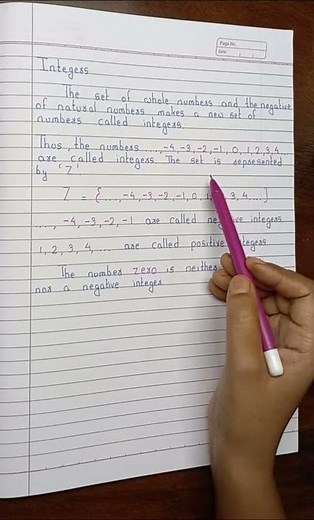 Page No.
Date
Integers
The set of whole numbers and the negative
of natural numbers makes a new set of
numbers called integers.
Thus, the numbers ....., -4, -3, -2, -1, 0, 1, 2, 3, 4
are called integers. The set is represented
by '7'
7 = {...., -4, -3, -2, -1, 0, 3, 4....}
..., -4, -3, -2, -1 are called integers
1, 2, 3, 4, .... are called positive integers
The number zero is neither
nor a negative integer